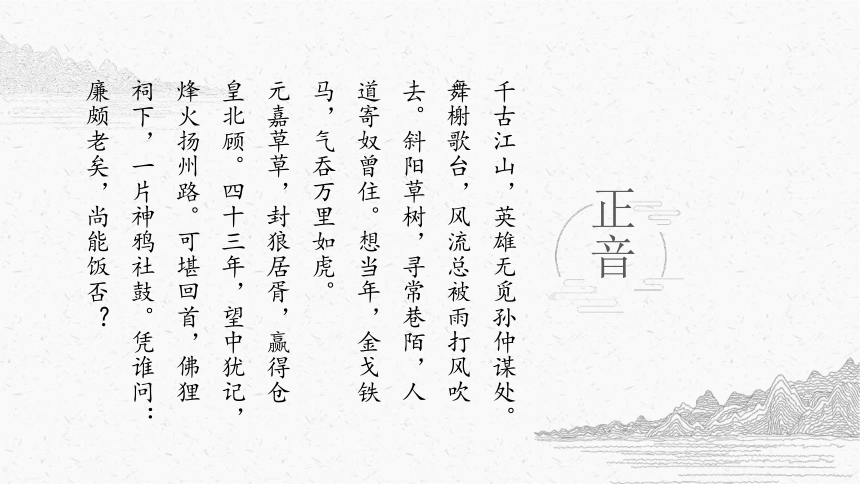 正音
千古江山，英雄无觅孙仲谋处。
舞榭歌台，风流总被雨打风吹
去。斜阳草树，寻常巷陌，人
道寄奴曾住。想当年，金戈铁
马，气吞万里如虎。
元嘉草草，封狼居胥，赢得仓
皇北顾。四十三年，望中犹记，
烽火扬州路。可堪回首，佛狸
祠下，一片神鸦社鼓。凭谁问：
廉颇老矣，尚能饭否？